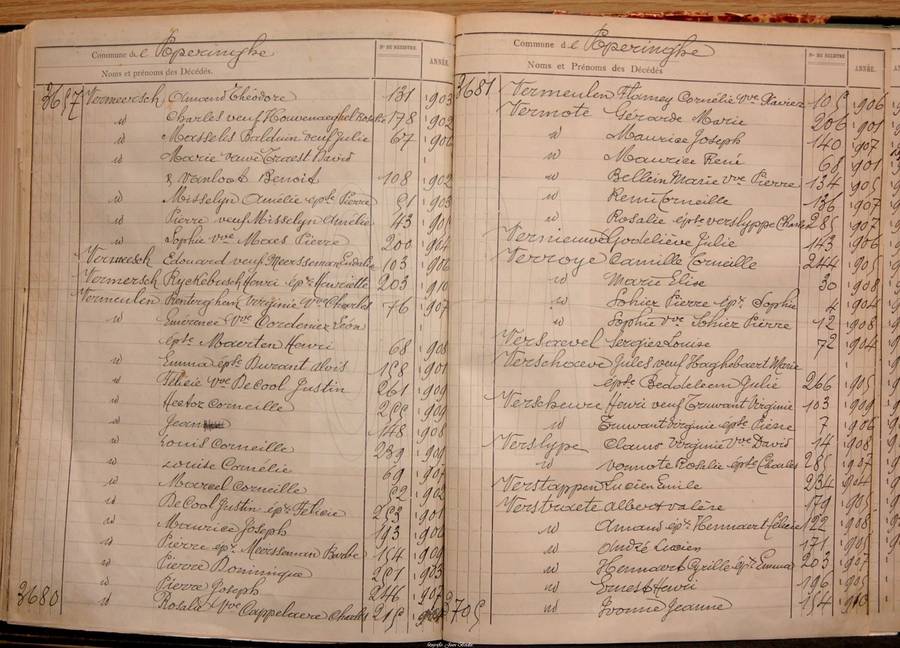 Commune de Poperinghe
Nos DU REGISTRE
ANNÉE.
Noms et prénoms des Décédés.
3657 Vermeersch Amand Théodore 131 903
id Charles veuf Houwenaeghel Rosalie 178 902
id Masselis Balduin veuf Julie 67 900
id Marie vauve Traest David
& Vanloot Benoit 108 902
id Misselyn Amélie epse Pierre 51 903
id Pierre veuf Misselyn Amélie 43 905
id Sophie vve Maes Pierre 200 904
Vermeesch Edouard veuf Meersseman Eudalie 103 906
Vermersch Ryckebusch Henri épx Henriette 203 910
Vermeulen Renterghem Virginie Vve Charles 76 907
id Emérence Vve Cordenier Léon
épse Maerten Henri 68 908
id Emma épse Durant Aloïs 158 901
id Félicie vve De Cool Justin 261 909
id Hector Corneille 255 909
id Jean 148 908
id Louis Corneille 239 909
id Louise Cornélie 69 907
id Marcel Corneille 52 903
id De Cool Justin épx Félicie 253 901
id Maurice Joseph 193 900
id Pierre épx Meersseman Barbe 154 909
id Pierre Dominique 251 903
id Pierre Joseph 246 907
3680 id Rosalie Vve Cappelaere Charles 215 904
Commune de Poperinghe
Nos DU REGISTRE
ANNÉE.
Noms et Prénoms des Décédés
3681 Vermeulen Flamey Cornélie vve Xavier 105 906
Vermote Gérarde Marie 206 901
id Maurice Joseph 140 907
id Maurice René 68 901
id Bellein Marie vve Pierre 134 905
id Remi Corneille 136 907
id Rosalie épse Verslyppe Charles 285 907
Vernieuwe Godelieve Julie 143 906
Verroye Camille Corneille 244 905
id Marie Elise 30 908
id Sohier Pierre épx Sophie 4 904
id Sophie vve Sohier Pierre 12 908
Versavel Sergies Louise 72 904
Verschaeve Jules veuf Haghebaert Marie
épse Beddeleem Julie 266 905
Verscheure Henri veuf Truwant Virginie 103 909
id Truwant Virginie épse Pierre 7 906
Verslype Clauw Virginie Vve David 14 908
id Vermote Rosalie épse Charles 285 907
Verstappen Lucien Emile 234 904
Verstraete Albert Valère 179 905
id Amand épx Hennaert Félicie 122 908
id André Lucien 171 905
id Hennaert Cyrille épx Emma 203 907
id Ernest Henri 196 905
3705 id Ivonne Jeanne 154 910